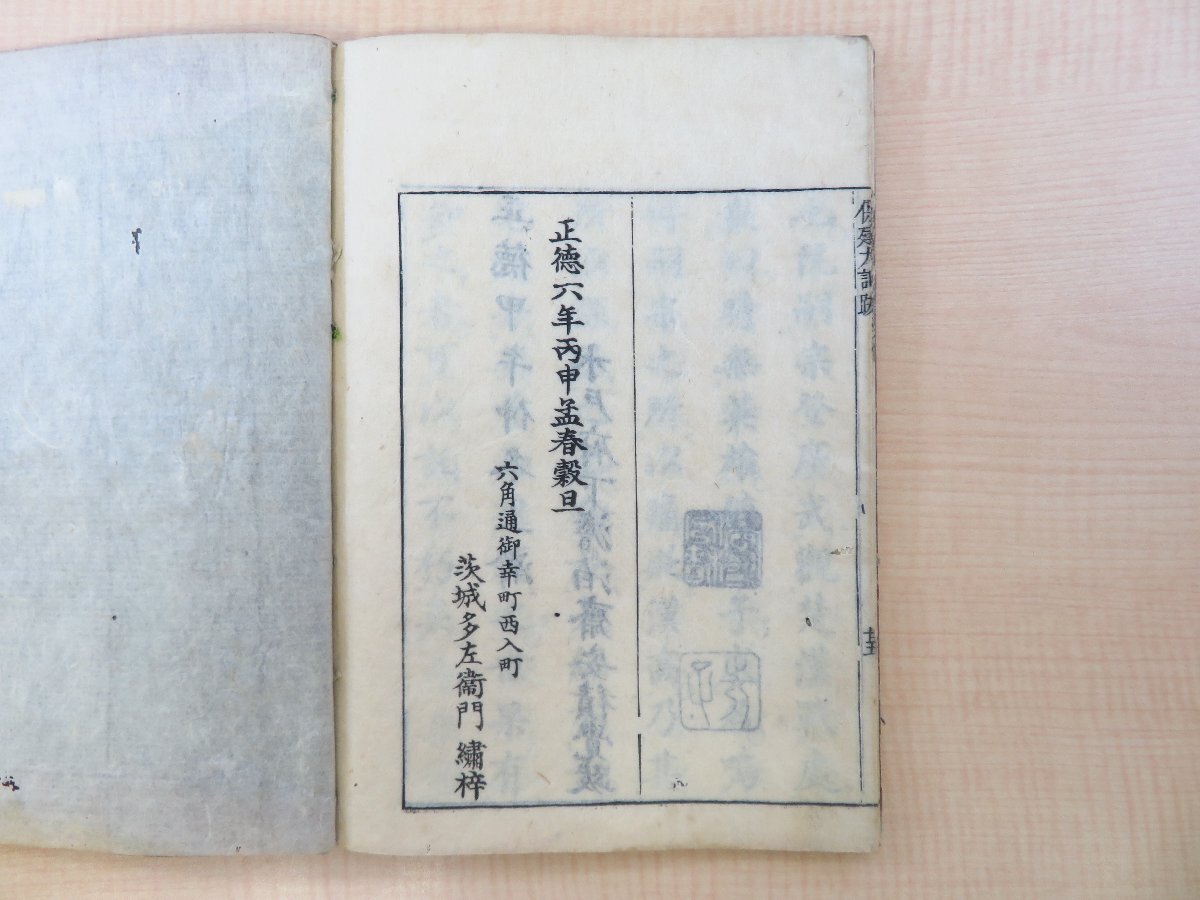 保建大記跋
正德六年丙申孟春穀旦
六角通御幸町西入町
茨城多左衞門 繡梓